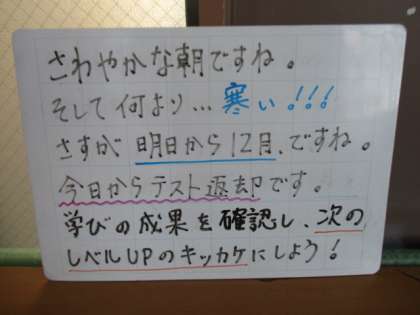 さわやかな朝ですね。
そして何より…寒い!!!
さすが明日から12月、ですね。
今日からテスト返却です。
学びの成果を確認し、次の
レベルUPのキッカケにしよう!